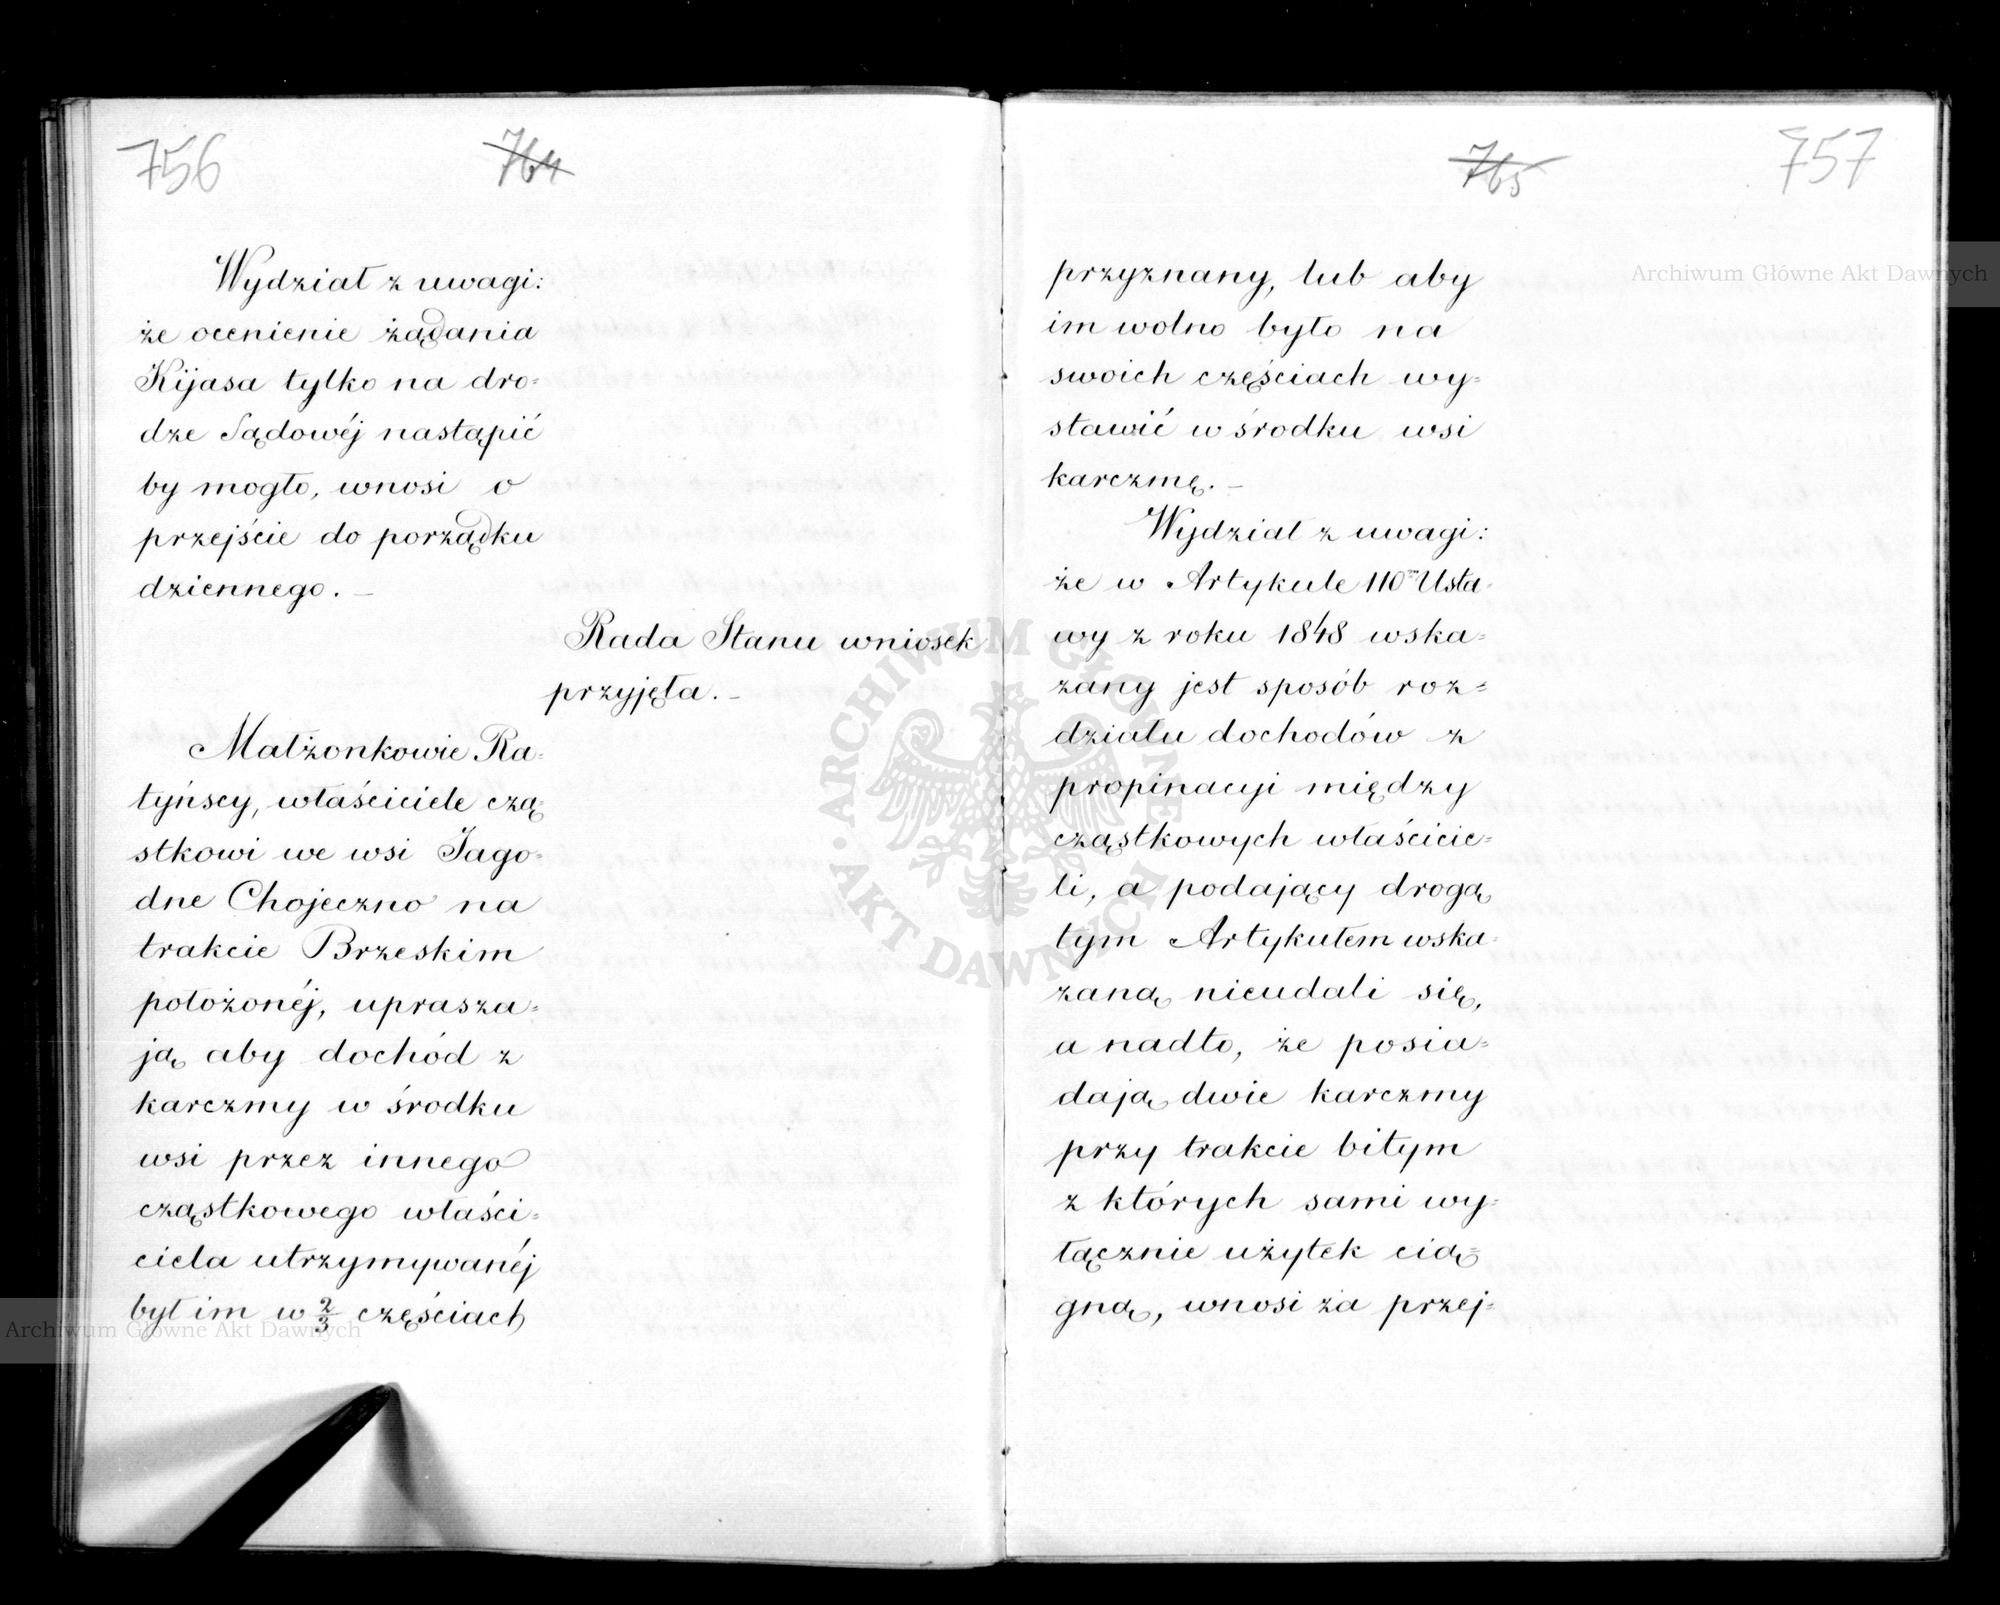 756
764
Wydział z uwagi:
że ocenienie żądania
Kijasa tylko na dro=
dze Sądowéj nastąpić
by mogło, wnosi o
przejście do porządku
dziennego. –
Rada Stanu wniosek
przyjęła. –
Małżonkowie Ra=
tyńscy, właściciele czą=
stkowi we wsi Jago=
dne Chojeczno na
trakcie Brzeskim
położonéj, uprasza=
ją aby dochód z
karczmy w środku
wsi przez innego
cząstkowego właści=
ciela utrzymywanéj
był im w 2/3 częściach
765
757
przyznany, lub aby
im wolno było na
swoich częściach wy=
stawić w środku wsi
karczmę. –
Wydział z uwagi:
że w Artykule 110m Usta=
wy z roku 1848 wska=
zany jest sposób roz=
działu dochodów z
propinacyi między
cząstkowych właścicie=
li, a podający drogą
tym Artykułem wska=
zaną nieudali się,
a nadto, że posia=
dają dwie karczmy
przy trakcie bitym
z których sami wy=
łącznie użytek cią=
gną, wnosi za przej=
Archiwum Główne Akt Dawnych
Archiwum Główne Akt Dawnych
ARCHIWUM GŁÓWNE AKT DAWNYCH